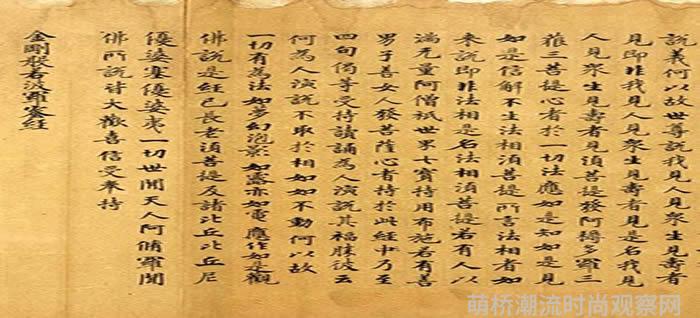 說義何以故世尊說我見人見衆生見壽者
見即非我見人見衆生見壽者見是名我見
人見衆生見壽者見須菩提發阿耨多羅三
藐三菩提心者於一切法應如是知如是見
如是信解不生法相須菩提所言法相者如
來說即非法相是名法相須菩提若有人以
滿无量阿僧祇世界七寶持用布施若有善
男子善女人發菩薩心者持於此經乃至
四句偈等受持讀誦為人演說其福勝彼云
何為人演說不取於相如如不動何以故
一切有為法如夢幻泡影如露亦如電應作如是觀
佛說是經已長老須菩提及諸比丘比丘尼
優婆塞優婆夷一切世間天人阿脩羅聞
佛所說皆大歡喜信受奉持
金剛般若波羅蜜經
萌桥潮流时尚观察网